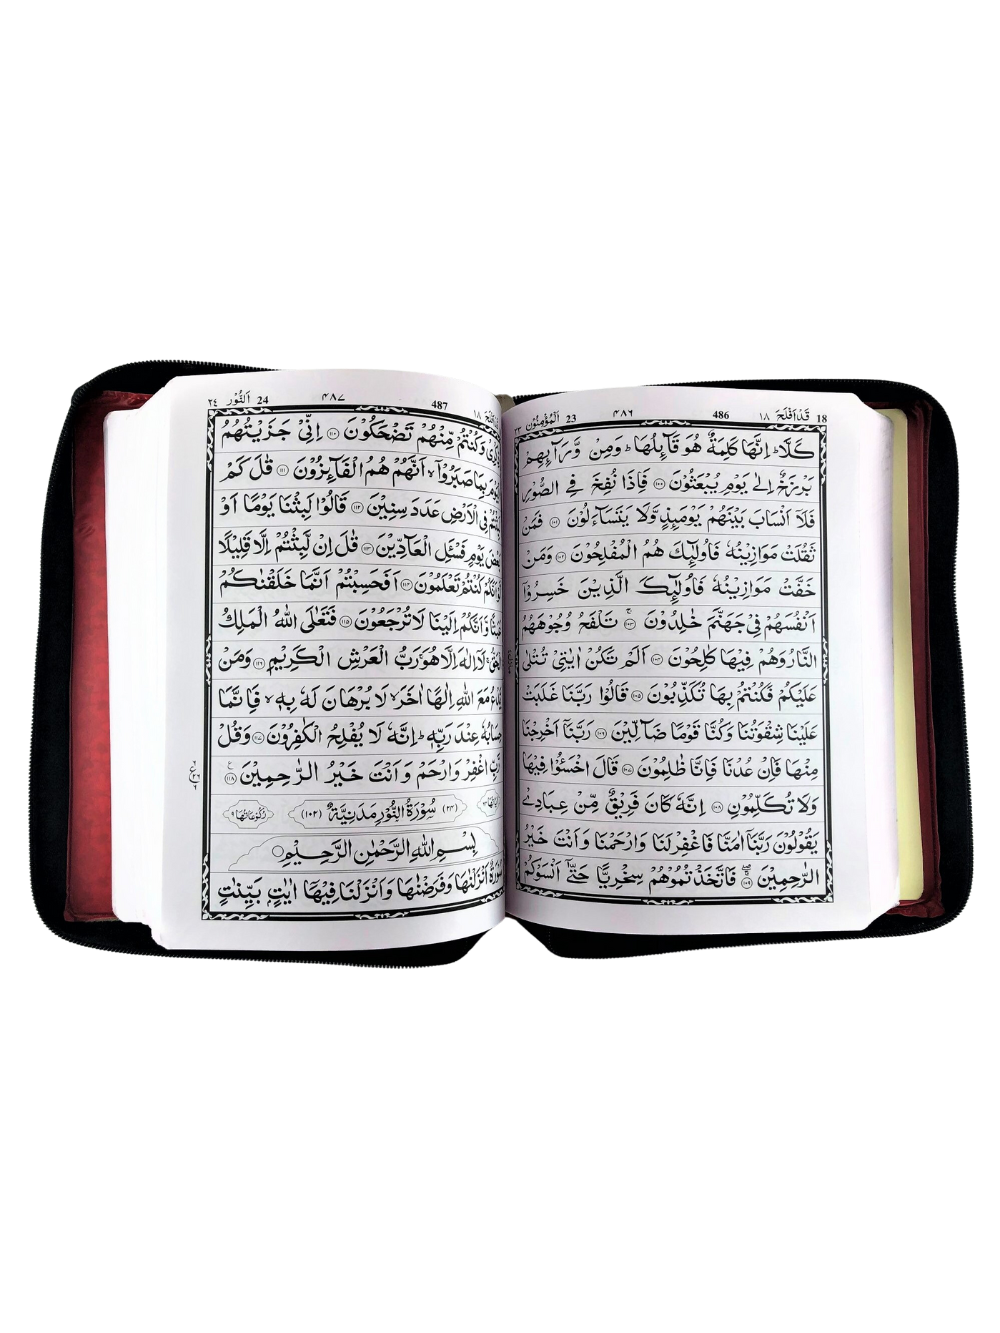 18 قَدْاَفْلَحَ ١٨ 486 ٤٨٦ 23 اَلْمُؤْمِنُوْن ٢٣
كَلَّا ؕ اِنَّهَا كَلِمَةٌ هُوَ قَآئِلُهَا ؕ وَمِنْ وَّرَآئِهِمْ
بَرْزَخٌ اِلٰى يَوْمِ يُبْعَثُوْنَ ۝١٠٠ فَاِذَا نُفِخَ فِى الصُّوْرِ
فَلَآ اَنْسَابَ بَيْنَهُمْ يَوْمَئِذٍ وَّلَا يَتَسَآءَلُوْنَ ۝١٠١ فَمَنْ
ثَقُلَتْ مَوَازِيْنُهٗ فَاُولٰٓئِكَ هُمُ الْمُفْلِحُوْنَ ۝١٠٢ وَمَنْ
خَفَّتْ مَوَازِيْنُهٗ فَاُولٰٓئِكَ الَّذِيْنَ خَسِرُوْٓا
اَنْفُسَهُمْ فِىْ جَهَنَّمَ خٰلِدُوْنَ ۝١٠٣ تَلْفَحُ وُجُوْهَهُمُ
النَّارُ وَهُمْ فِيْهَا كٰلِحُوْنَ ۝١٠٤ اَلَمْ تَكُنْ اٰيٰتِىْ تُتْلٰى
عَلَيْكُمْ فَكُنْتُمْ بِهَا تُكَذِّبُوْنَ ۝١٠٥ قَالُوْا رَبَّنَا غَلَبَتْ
عَلَيْنَا شِقْوَتُنَا وَكُنَّا قَوْمًا ضَآلِّيْنَ ۝١٠٦ رَبَّنَآ اَخْرِجْنَا
مِنْهَا فَاِنْ عُدْنَا فَاِنَّا ظٰلِمُوْنَ ۝١٠٧ قَالَ اخْسَـُٔوْا فِيْهَا
وَلَا تُكَلِّمُوْنِ ۝١٠٨ اِنَّهٗ كَانَ فَرِيْقٌ مِّنْ عِبَادِىْ
يَقُوْلُوْنَ رَبَّنَآ اٰمَنَّا فَاغْفِرْ لَنَا وَارْحَمْنَا وَاَنْتَ خَيْرُ
الرّٰحِمِيْنَ ۝١٠٩ فَاتَّخَذْتُمُوْهُمْ سِخْرِيًّا حَتّٰٓى اَنْسَوْكُمْ
١٨ 487 ٤٨٧ 24 اَلنُّوْر ٢٤
وَكُنْتُمْ مِّنْهُمْ تَضْحَكُوْنَ ۝١١٠ اِنِّىْ جَزَيْتُهُمُ
بِمَا صَبَرُوْٓا ۙ اَنَّهُمْ هُمُ الْفَآئِزُوْنَ ۝١١١ قٰلَ كَمْ
فِى الْاَرْضِ عَدَدَ سِنِيْنَ ۝١١٢ قَالُوْا لَبِثْنَا يَوْمًا اَوْ
يَوْمٍ فَسْـَٔلِ الْعَآدِّيْنَ ۝١١٣ قٰلَ اِنْ لَّبِثْتُمْ اِلَّا قَلِيْلًا
كُنْتُمْ تَعْلَمُوْنَ ۝١١٤ اَفَحَسِبْتُمْ اَنَّمَا خَلَقْنٰكُمْ
وَّاَنَّكُمْ اِلَيْنَا لَا تُرْجَعُوْنَ ۝١١٥ فَتَعٰلَى اللّٰهُ الْمَلِكُ
لَآ اِلٰهَ اِلَّا هُوَ ۚ رَبُّ الْعَرْشِ الْكَرِيْمِ ۝١١٦ وَمَنْ
مَعَ اللّٰهِ اِلٰهًا اٰخَرَ ۙ لَا بُرْهَانَ لَهٗ بِهٖ ۙ فَاِنَّمَا
عِنْدَ رَبِّهٖ ؕ اِنَّهٗ لَا يُفْلِحُ الْكٰفِرُوْنَ ۝١١٧ وَقُلْ
اغْفِرْ وَارْحَمْ وَاَنْتَ خَيْرُ الرّٰحِمِيْنَ ۝١١٨
(٢٤) سُوْرَةُ النُّوْرِ مَدَنِيَّةٌ (١٠٢) رُكُوْعَاتُهَا ٩
بِسْمِ اللّٰهِ الرَّحْمٰنِ الرَّحِيْمِ
اَنْزَلْنٰهَا وَفَرَضْنٰهَا وَاَنْزَلْنَا فِيْهَآ اٰيٰتٍۢ بَيِّنٰتٍ